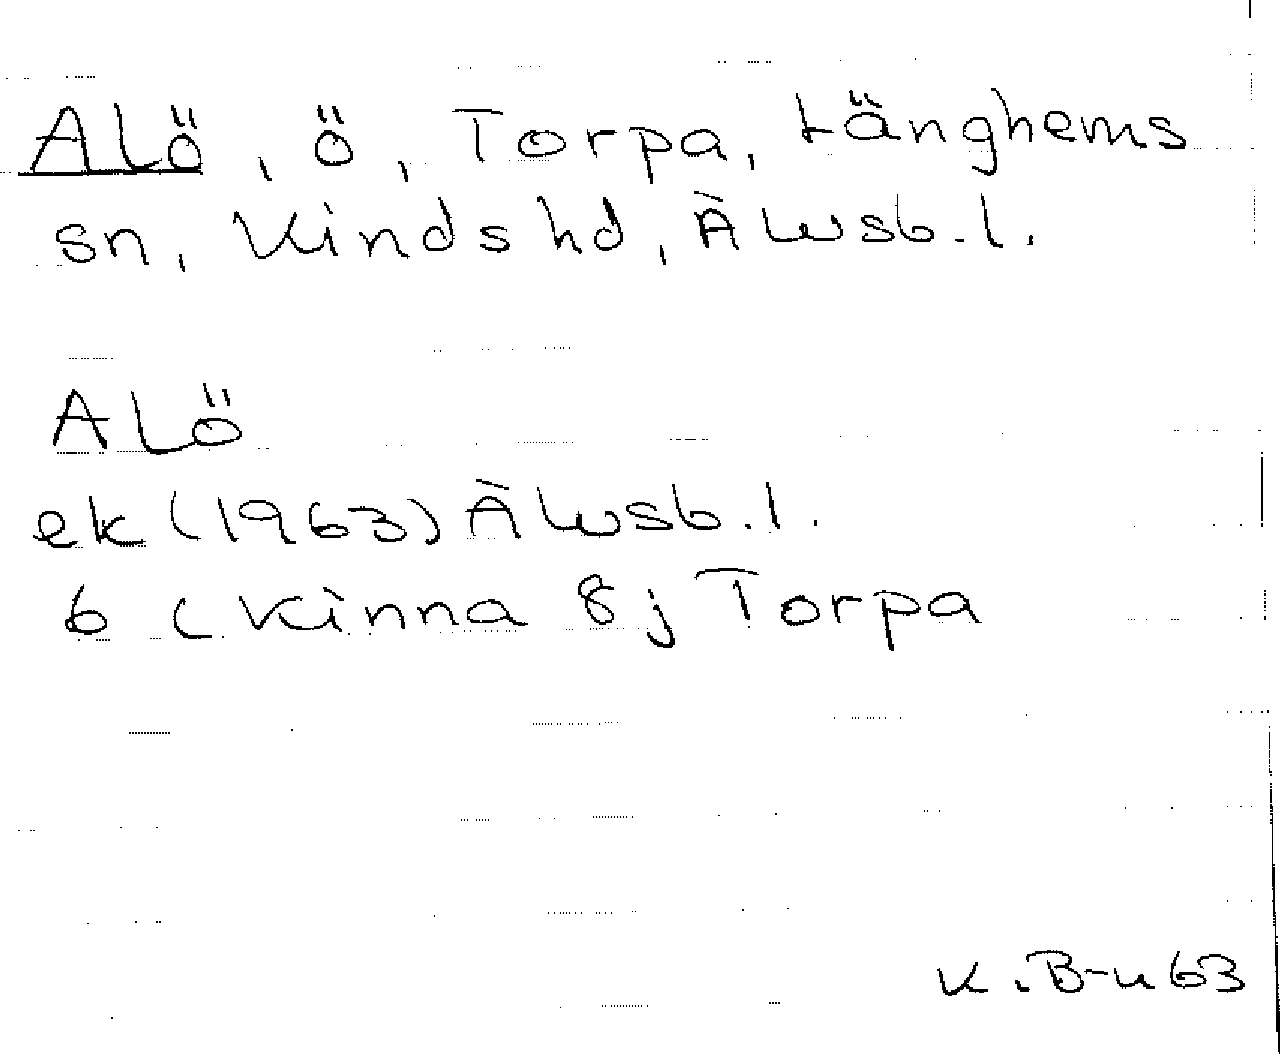 ALÖ, ö, Torpa, Länghems
sn, Kinds hd, Älvsb. l.
ALÖ
ek (1963) Älvsb. l.
6 ( Kinna 8 j Torpa
K. B-n 63